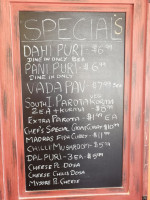 SPECIAL'S
DAHI PURI - $6.99
DINE IN ONLY
PANI PURI - $6.99
DINE IN ONLY
VADA PAV - $7.99
SOUTH I. PAROTA KURMA
2EA + KURMA
EXTRA PAROTA - $1.99 EA
CHEF'S SPECIAL GOAT CURRY
MADRAS FISH CURRY
CHILLI MUSHROOM
DAL PURI - 3EA - $5.99
CHEESE PL DOSA
CHEESE CHILLI DOSA
MYSORE PL CHEESE